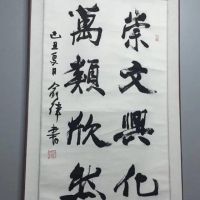 崇文興化
萬類欣然
己丑夏日俞偉書